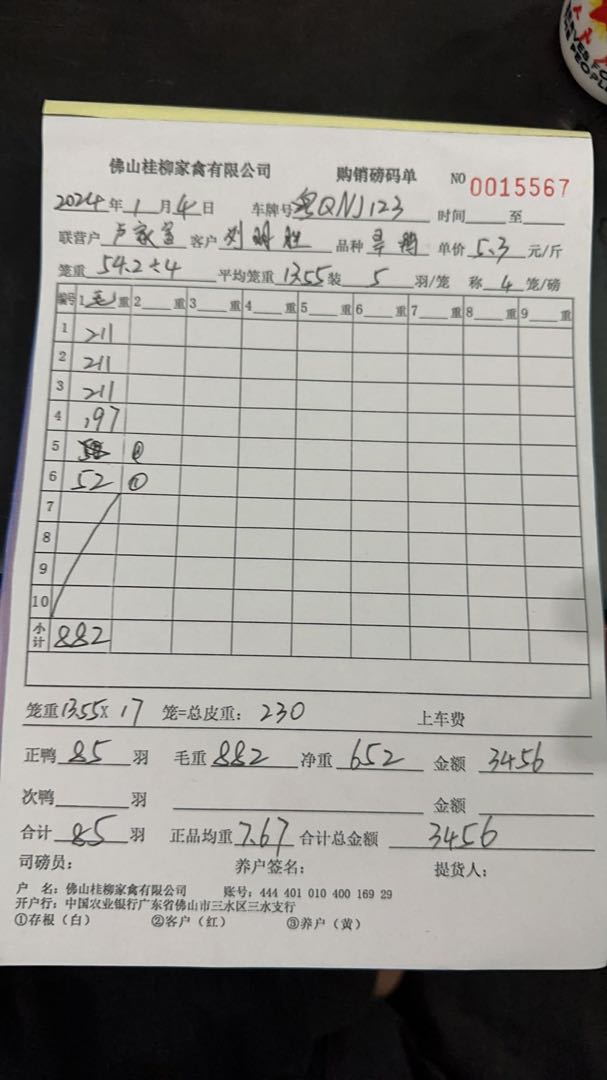 佛山桂柳家禽有限公司 购销磅码单 NO 0015567
2024年1月4日 车牌号粤QNJ123 时间____至____
联营户 卢家 客户 刘明胜 品种 旱鸭 单价 5.3 元/斤
笼重 54.2÷4 平均笼重 13.55 装 5 羽/笼 称 4 笼/磅
编号 1 毛 重 2____重 3____重 4____重 5____重 6____重 7____重 8____重 9____重
1 211
2 211
3 211
4 197
5 ①
6 52 ①
7
8
9
10
小计 882
笼重13.55X 17 笼=总皮重: 230 上车费
正鸭 85 羽 毛重 882 净重 652 金额 3456
次鸭____羽 ____ 金额____
合计 85 羽 正品均重 7.67 合计总金额 3456
司磅员: 养户签名: 提货人:
户 名: 佛山桂柳家禽有限公司 账号: 444 401 010 400 169 29
开户行: 中国农业银行广东省佛山市三水区三水支行
①存根（白） ②客户（红） ③养户（黄）